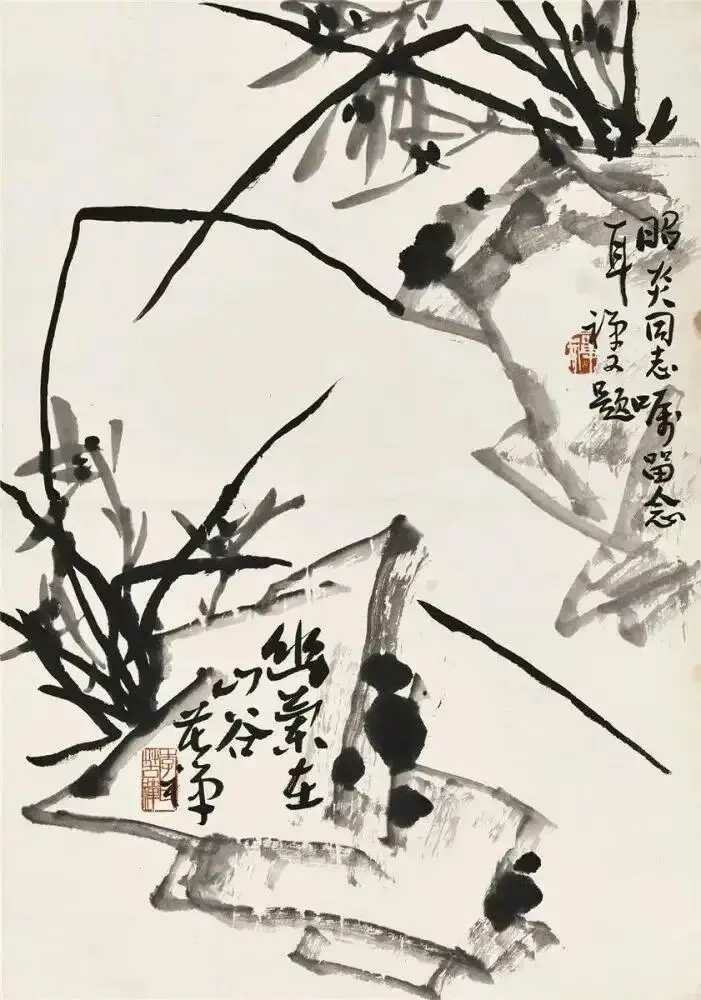 昭炎同志嘱留念
耳禅又题
幽蘭在
山谷
苦禅